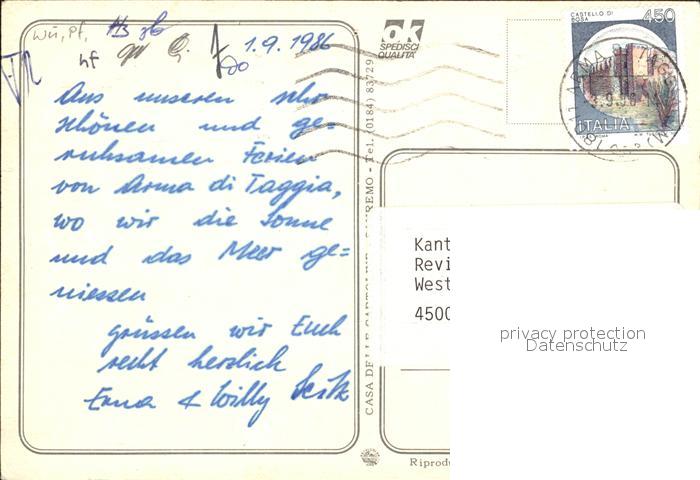 Wü, Pf,
hf
1.9.1986
Aus unseren sehr
schönen und ge=
ruhsamen Ferien
von Arma di Taggia,
wo wir die Sonne
und das Meer ge=
niessen
grüssen wir Euch
recht herzlich
Erna & Willy
CASA DELLE CARTOLINE
REMO - Tel. (0184) 83729
OK
SPEDISCI
QUALITÀ
CASTELLO DI
ROSA
450
ITALIA
ROMA
ARMA DI TAGGIA
Kant
Revi
West
4500
privacy protection
Datenschutz
Riprodu